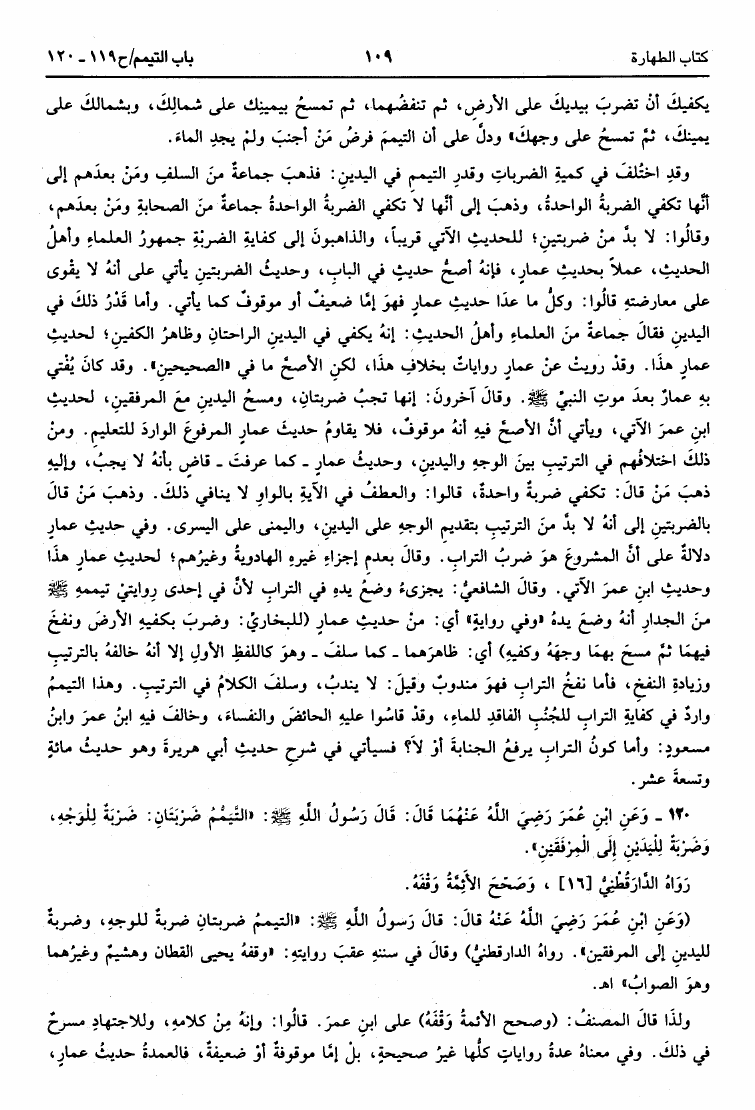 كتاب الطهارة ١٠٩ باب التيمم/ح١١٩ ـ ١٢٠
يكفيكَ أنْ تضربَ بيديكَ على الأرضِ، ثم تنفضُهما، ثم تمسحُ بيمينِك على شمالِكَ، وبشمالكَ على
يمينكَ، ثمَّ تمسحُ على وجهكَ» ودلَّ على أن التيممَ فرضُ مَنْ أجنبَ ولمْ يجدِ الماءَ.
وقدِ اختُلفَ في كميةِ الضرباتِ وقدرِ التيممِ في اليدينِ: فذهبَ جماعةٌ منَ السلفِ ومَنْ بعدَهم إلى
أنَّها تكفي الضربةُ الواحدةُ، وذهبَ إلى أنَّها لا تكفي الضربةُ الواحدةُ جماعةٌ منَ الصحابةِ ومَنْ بعدَهم،
وقالُوا: لا بدَّ منْ ضربتينِ؛ للحديثِ الآتي قريباً، والذاهبونَ إلى كفايةِ الضربةِ جمهورُ العلماءِ وأهلُ
الحديثِ، عملاً بحديثِ عمارٍ، فإنهُ أصحُّ حديثٍ في البابِ، وحديثُ الضربتينِ يأتي على أنهُ لا يقْوى
على معارضتهِ قالُوا: وكلُّ ما عدَا حديثِ عمارٍ فهوَ إمَّا ضعيفٌ أو موقوفٌ كما يأتي. وأما قَدْرُ ذلكَ في
اليدينِ فقالَ جماعةٌ منَ العلماءِ وأهلُ الحديثِ: إنهُ يكفي في اليدينِ الراحتانِ وظاهرُ الكفينِ؛ لحديثِ
عمارٍ هذَا. وقدْ رويتْ عنْ عمارٍ رواياتٌ بخلافِ هذَا، لكنِ الأصحَّ ما في «الصحيحينِ». وقد كانَ يُفْتي
بهِ عمارٌ بعدَ موتِ النبيِّ ﷺ. وقالَ آخرونَ: إنها تجبُ ضربتانِ، ومسحُ اليدينِ معَ المرفقينِ، لحديثِ
ابنِ عمرَ الآتي، ويأتي أنَّ الأصحَّ فيهِ أنهُ موقوفٌ، فلا يقاومُ حديثَ عمارٍ المرفوعَ الواردَ للتعليمِ. ومنْ
ذلكَ اختلافُهم في الترتيبِ بينَ الوجهِ واليدينِ، وحديثُ عمارٍ ـ كما عرفتَ ـ قاضٍ بأنهُ لا يجبُ، وإليهِ
ذهبَ مَنْ قالَ: تكفي ضربةٌ واحدةٌ، قالوا: والعطفُ في الآيةِ بالواوِ لا ينافي ذلكَ. وذهبَ مَنْ قالَ
بالضربتينِ إلى أنهُ لا بدَّ منَ الترتيبِ بتقديمِ الوجهِ على اليدينِ، واليمنى على اليسرى. وفي حديثِ عمارٍ
دلالةٌ على أنَّ المشروعَ هوَ ضربُ الترابِ. وقالَ بعدمِ إجزاءِ غيرهِ الهادويةُ وغيرُهم؛ لحديثِ عمارٍ هذَا
وحديثِ ابنِ عمرَ الآتي. وقالَ الشافعيُّ: يجزىءُ وضعُ يدهِ في الترابِ لأنَّ في إحدى رِوايتيْ تيممهِ ﷺ
منَ الجدارِ أنهُ وضعَ يدهُ «وفي روايةٍ» أي: منْ حديثِ عمارٍ (للبخاريِّ: وضربَ بكفيهِ الأرضَ ونفخَ
فيهمَا ثمَّ مسحَ بهمَا وجهَهُ وكفيهِ) أي: ظاهرَهما ـ كما سلفَ ـ وهوَ كاللفظِ الأولِ إلا أنهُ خالفهُ بالترتيبِ
وزيادةِ النفخِ، فأما نفخُ الترابِ فهوَ مندوبٌ وقيلَ: لا يندبُ، وسلفَ الكلامُ في الترتيبِ. وهذا التيممُ
واردٌ في كفايةِ الترابِ للجُنُبِ الفاقدِ للماءِ، وقدْ قاسُوا عليهِ الحائضَ والنفساءَ، وخالفَ فيهِ ابنُ عمرَ وابنُ
مسعودٍ: وأما كونُ الترابِ يرفعُ الجنابةَ أوْ لاَ؟ فسيأتي في شرحِ حديثِ أبي هريرةَ وهو حديثُ مائةٍ
وتسعةَ عشر.
١٢٠ ـ وَعَنِ ابْنِ عُمَرَ رَضِيَ اللَّهُ عَنْهُمَا قَالَ: قَالَ رَسُولُ اللَّهِ ﷺ: «التَّيَمُّمُ ضَرْبَتَانِ: ضَرْبَةٌ لِلْوَجْهِ،
وَضَرْبَةٌ لِلْيَدَيْنِ إِلَى الْمِرْفَقَيْنِ».
رَوَاهُ الدَّارَقُطْنِيُّ [١٦] ، وَصَحَّحَ الأَئِمَّةُ وَقْفَهُ.
(وَعَنِ ابْنِ عُمَرَ رَضِيَ اللَّهُ عَنْهُ قالَ: قالَ رَسولُ اللَّهِ ﷺ: «التيممُ ضربتانِ ضربةٌ للوجهِ، وضربةٌ
لليدينِ إلى المرفقينِ». رواهُ الدارقطنيُّ) وقالَ في سننهِ عقبَ روايتهِ: «وقفهُ يحيى القطان وهشيمٌ وغيرُهما
وهوَ الصوابُ» اهـ.
ولذَا قالَ المصنفُ: (وصحح الأئمةُ وَقْفَهُ) على ابنِ عمرَ. قالُوا: وإنهُ مِنْ كلامهِ، وللاجتهادِ مسرحٌ
في ذلكَ. وفي معناهُ عدةُ رواياتٍ كلُّها غيرُ صحيحةٍ، بلْ إمَّا موقوفةٌ أوْ ضعيفةٌ، فالعمدةُ حديثُ عمارٍ،